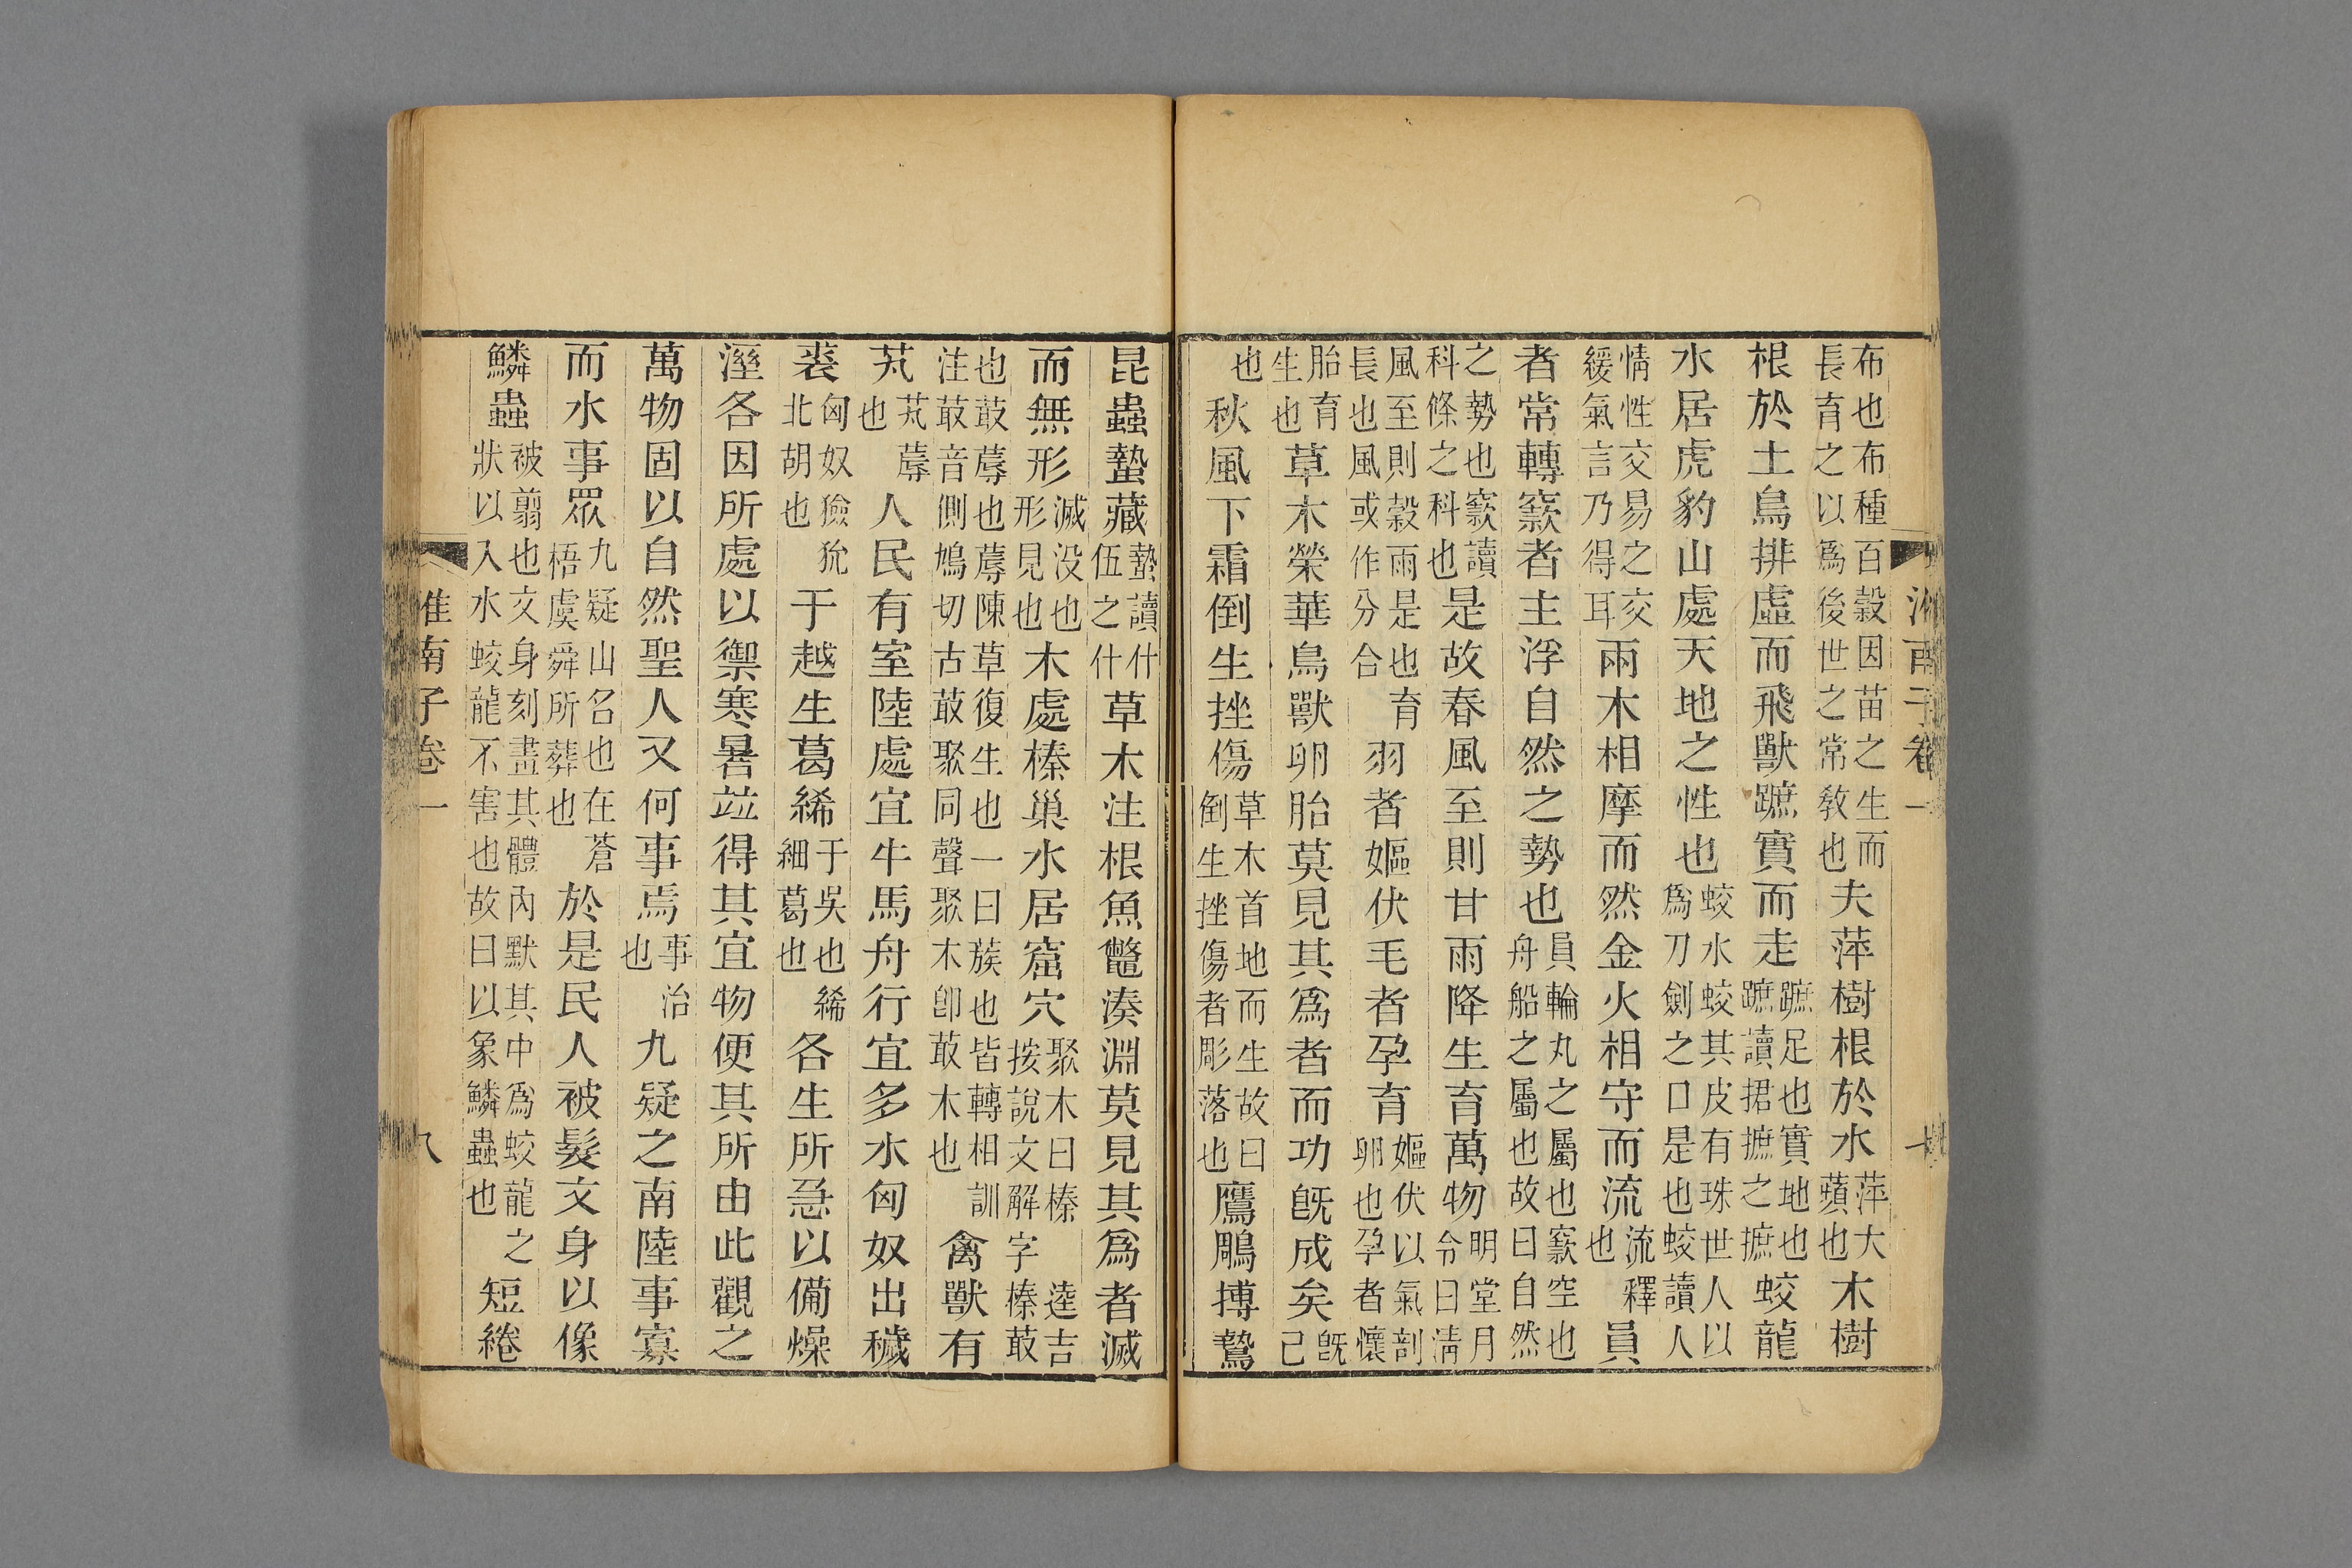 布也布種百穀因苗之生而長育之以爲後世之常敎也夫萍樹根於水萍大蘋也木樹
根於土鳥排虛而飛獸蹠實而走蹠足也實地也蹠讀捃摭之摭蛟龍
水居虎豹山處天地之性也蛟水蛟其皮有珠世人以爲刀劍之口是也蛟讀人
情性交易之交緩氣言乃得耳兩木相摩而然金火相守而流流釋也員
者常轉窾者主浮自然之勢也員輪丸之屬也窾空也舟船之屬也故曰自然
之勢也窾讀科條之科也是故春風至則甘雨降生育萬物明堂月令曰淸
風至則穀雨是也育長也風或作分合羽者嫗伏毛者孕育嫗伏以氣剖卵也孕者懷
胎育生也草木榮華鳥獸卵胎莫見其爲者而功旣成矣旣己
也秋風下霜倒生挫傷草木首地而生故曰倒生挫傷者彫落也鷹鵰搏鷙
昆蟲蟄藏蟄讀什伍之什草木注根魚鼈湊淵莫見其爲者滅
而無形滅没也形見也木處榛巢水居窟穴聚木曰榛 逵吉按說文解字榛菆
也菆蓐也蓐陳草復生也一曰蔟也皆轉相訓注菆音側鳩切古菆聚同聲聚木卽菆木也禽獸有
艽艽蓐也人民有室陸處宜牛馬舟行宜多水匈奴出穢
裘匈奴獫狁北胡也于越生葛絺于吳也絺細葛也各生所急以備燥
溼各因所處以禦寒暑竝得其宜物便其所由此觀之
萬物固以自然聖人又何事焉事治也九疑之南陸事寡
而水事眾九疑山名也在蒼梧虞舜所葬也於是民人被髮文身以像
鱗蟲被翦也文身刻畫其體內默其中爲蛟龍之狀以入水蛟龍不害也故曰以象鱗蟲也短綣
淮南子卷一